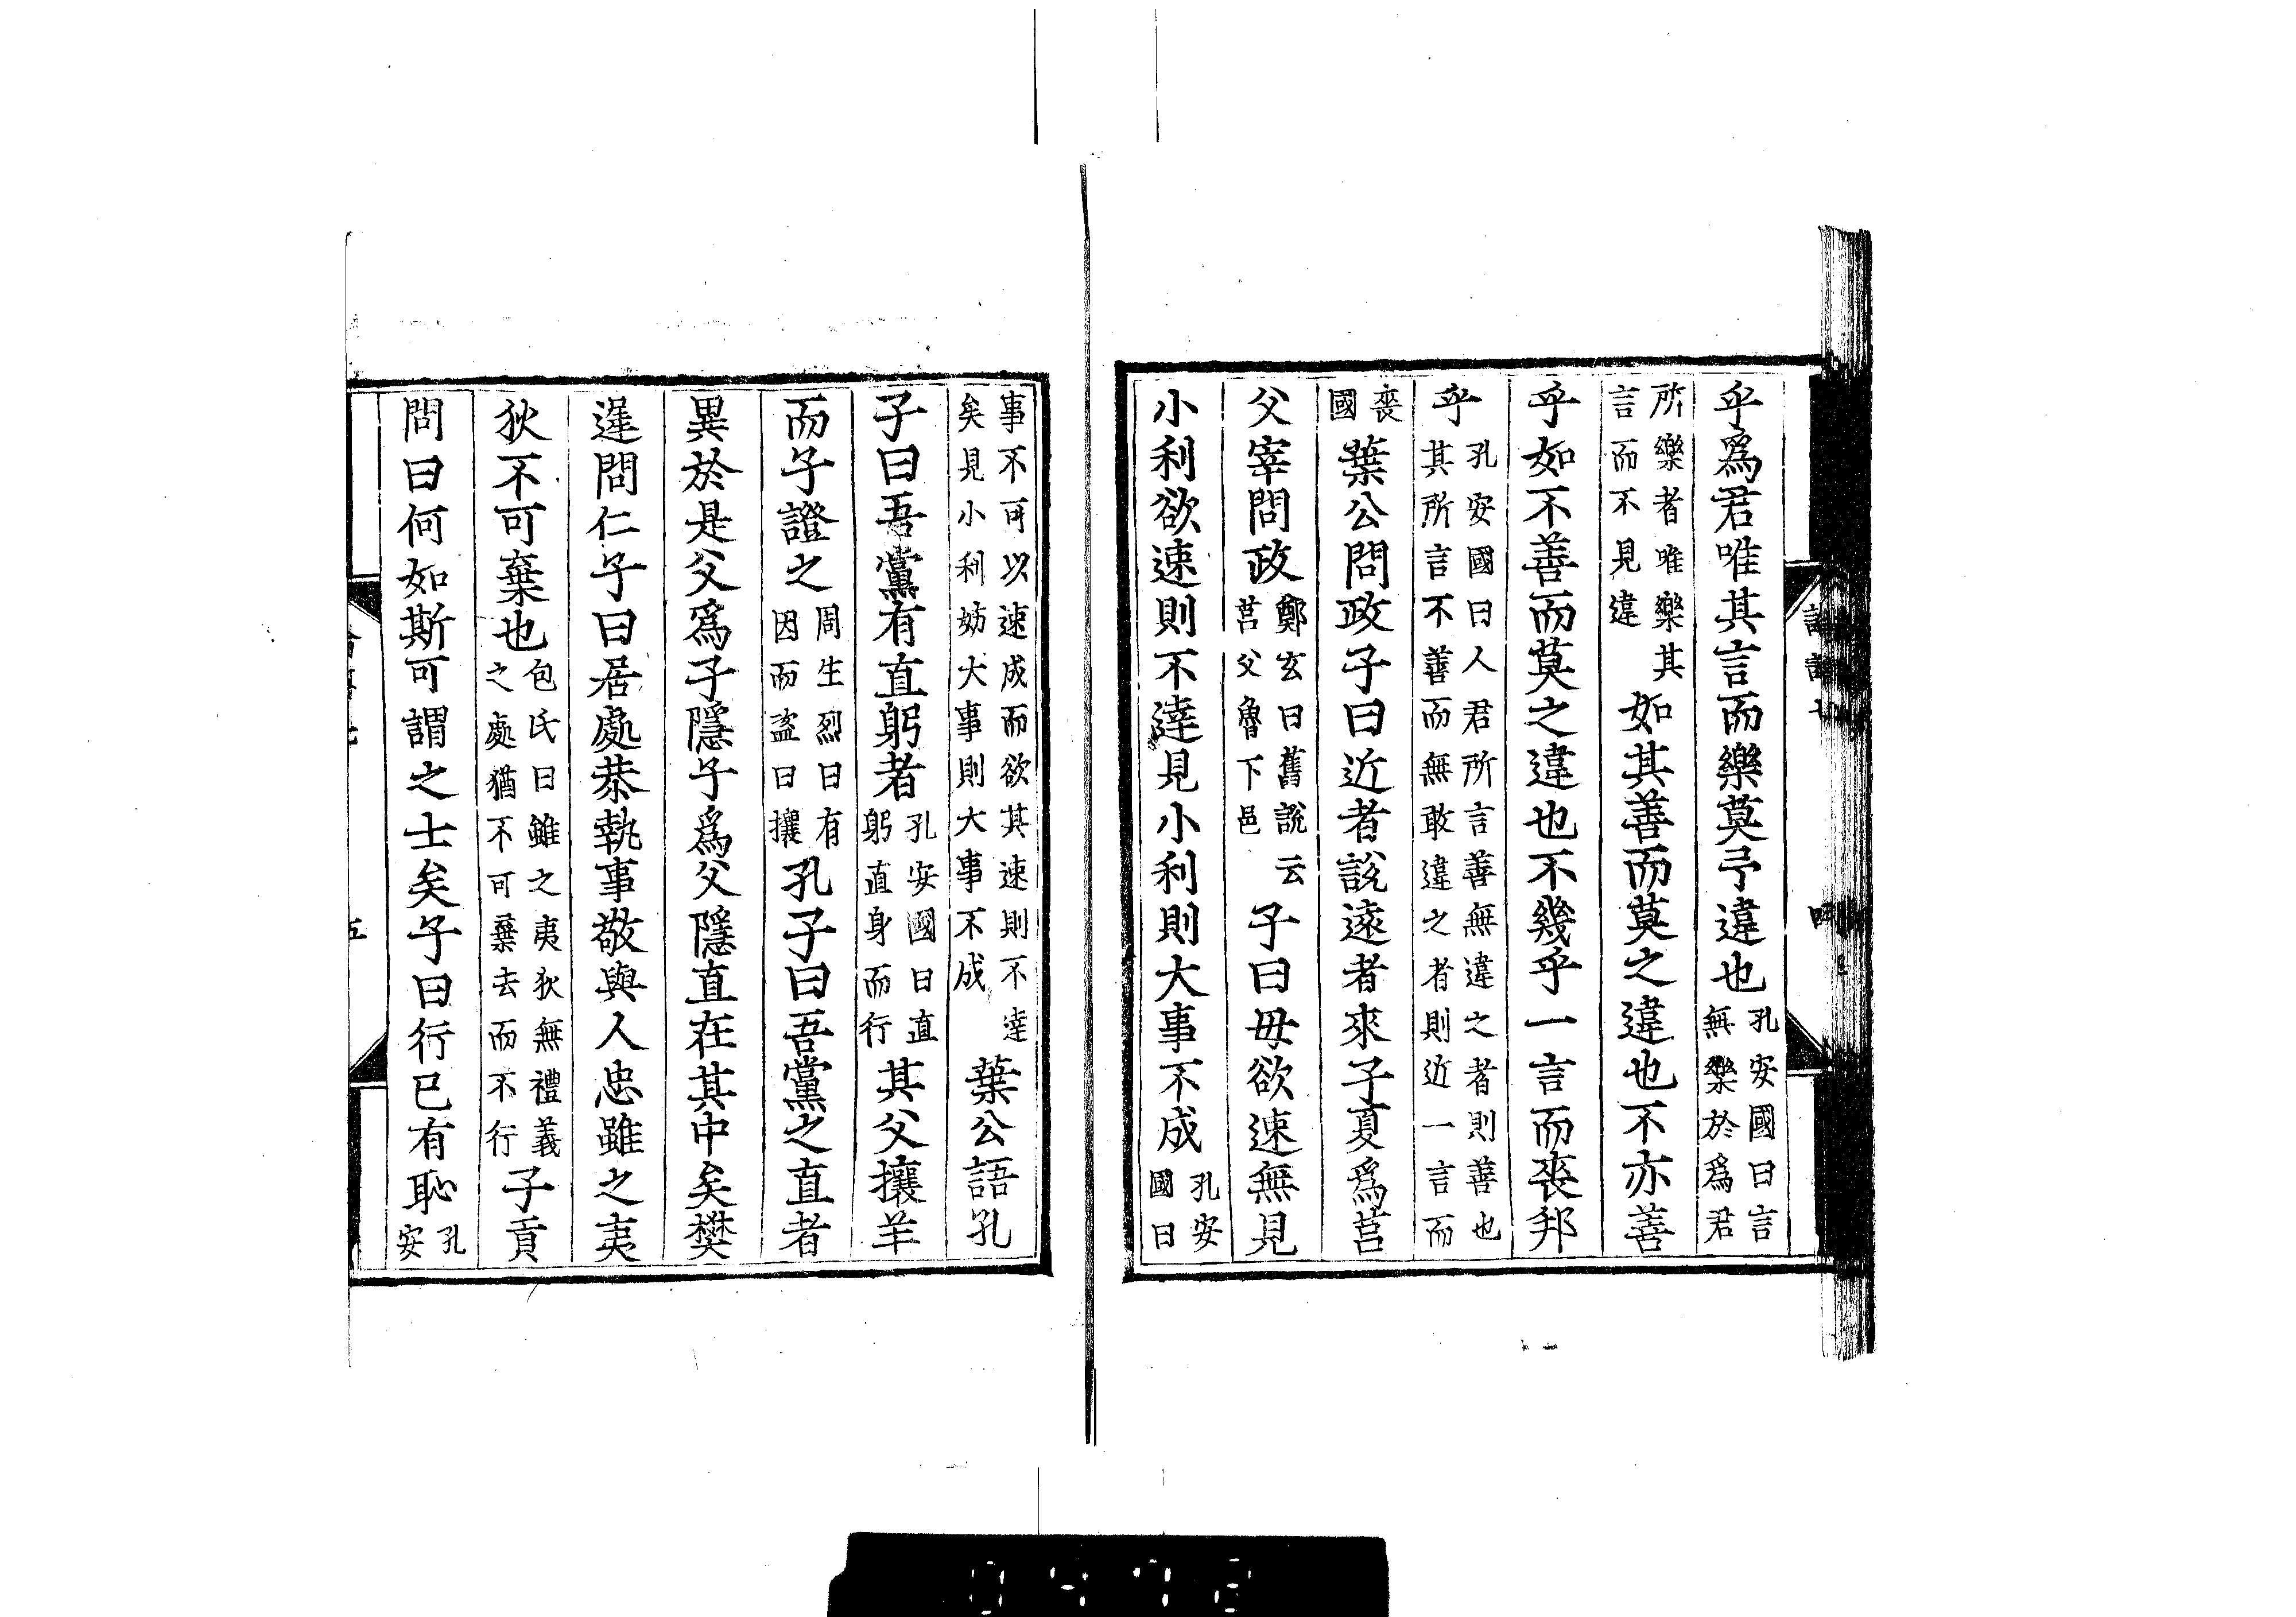 乎爲君唯其言而樂莫予違也孔安國曰言無樂於爲君
所樂者唯樂其言而不見違如其善而莫之違也不亦善
乎如不善而莫之違也不幾乎一言而喪邦
乎孔安國曰人君所言善無違之者則善也其所言不善而無敢違之者則近一言而
喪國葉公問政子曰近者說遠者來子夏爲莒
父宰問政鄭玄曰舊說云莒父魯下邑子曰毋欲速無見
小利欲速則不達見小利則大事不成孔安國曰
事不可以速成而欲其速則不達矣見小利妨大事則大事不成葉公語孔
子曰吾黨有直躬者孔安國曰直躬直身而行其父攘羊
而子證之周生烈曰有因而盜曰攘孔子曰吾黨之直者
異於是父爲子隱子爲父隱直在其中矣樊
遲問仁子曰居處恭執事敬與人忠雖之夷
狄不可棄也包氏曰雖之夷狄無禮義之處猶不可棄去而不行子貢
問曰何如斯可謂之士矣子曰行已有恥孔安
五